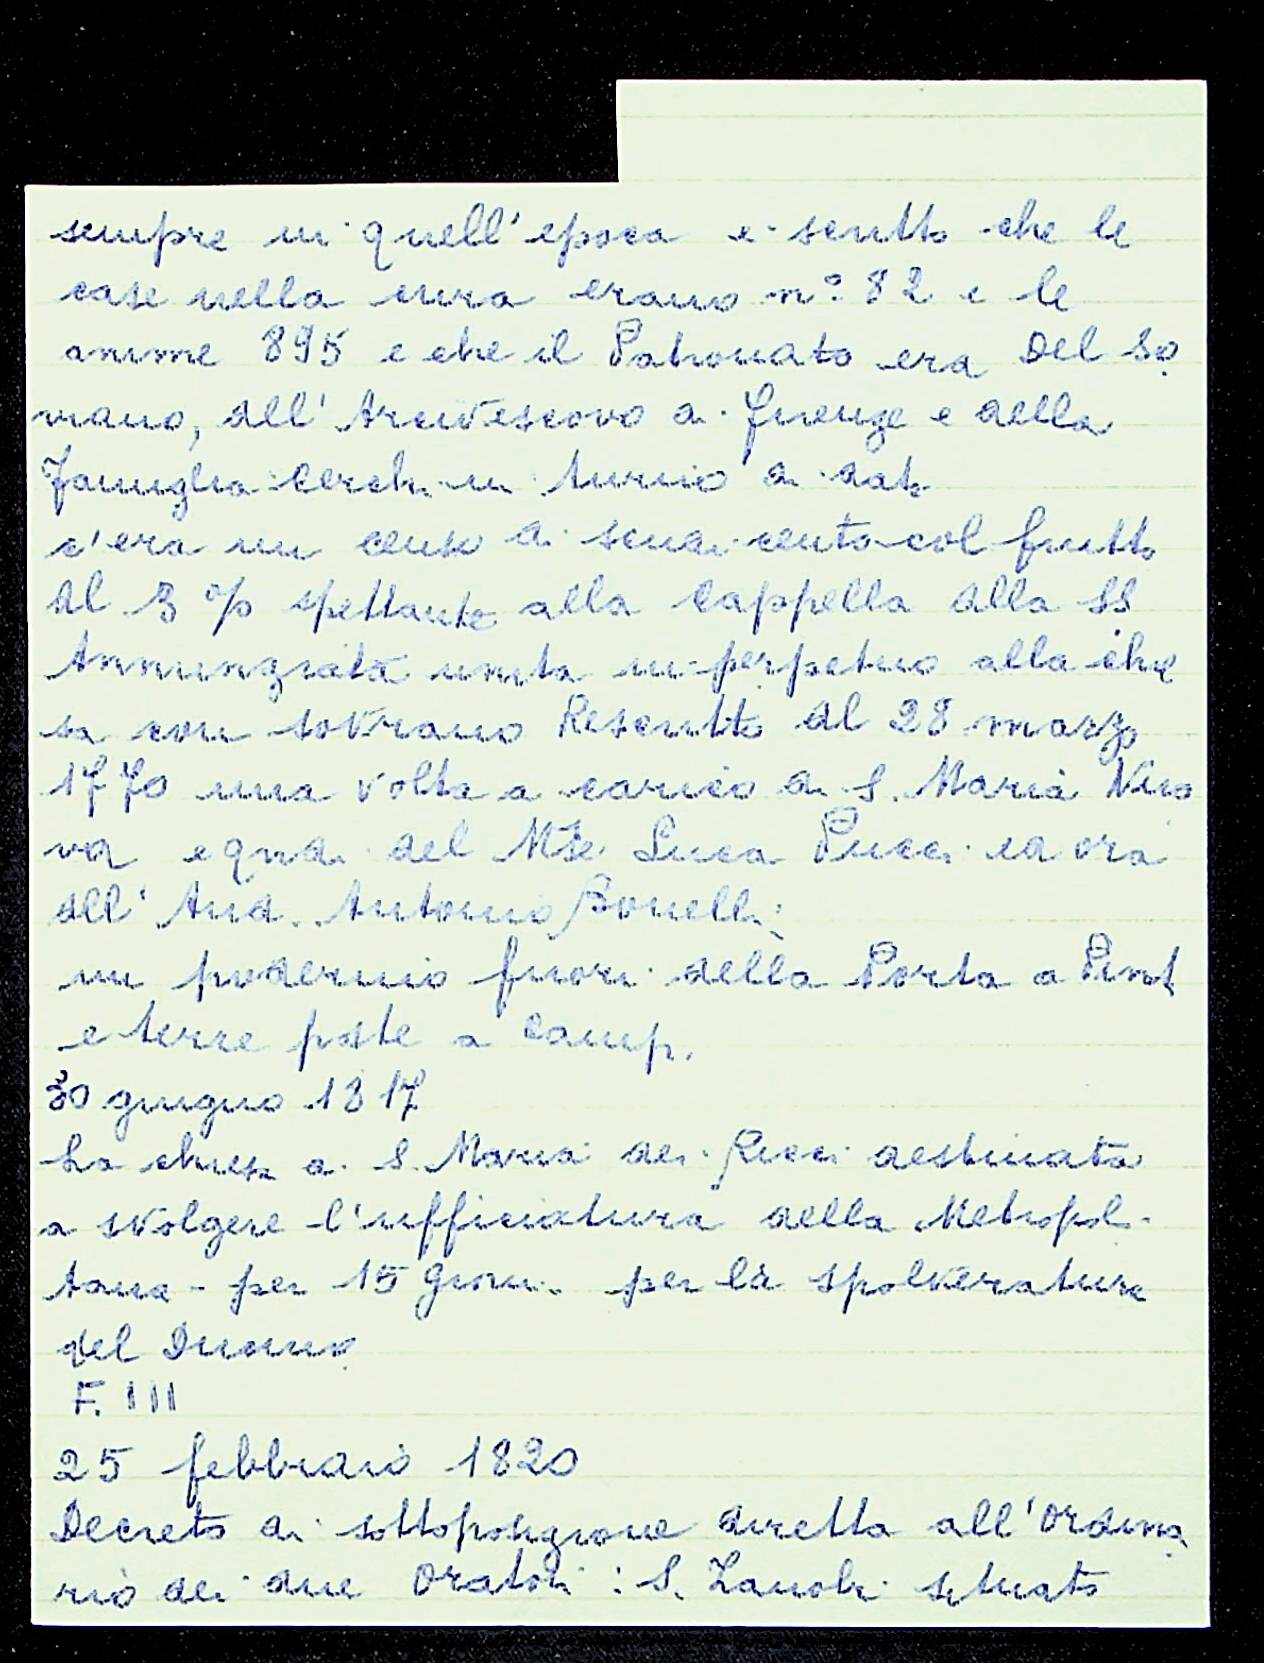 sempre in quell'epoca è scritto che le
case nella cura erano n.° 82 e le
anime 895 e che il Patronato era del So
vrano, dell'Arcivescovo di Firenze e della
Famiglia Cerchi in turno di
c'era un censo di scudi cento col frutto
del 3% spettante alla Cappella della SS
Annunziata unita in perpetuo alla chie
sa con sovrano Rescritto del 28 marzo
1770 una volta a carico di S. Maria Nuo
va e quindi del Mse Luca Pucci ed ora
dell' Aud. Antonio Bonelli;
un poderino fuori della Porta a Pinti
e terre poste a Campi.
30 giugno 1817
La chiesa di S. Maria dei Ricci destinata
a svolgere l'ufficiatura della Metropoli-
tana - per 15 giorni per la spolveratura
del Duomo
F. III
25 febbraio 1820
Decreto di sottoposizione diretta all'Ordina
rio dei due Oratori: S. Zanobi situato